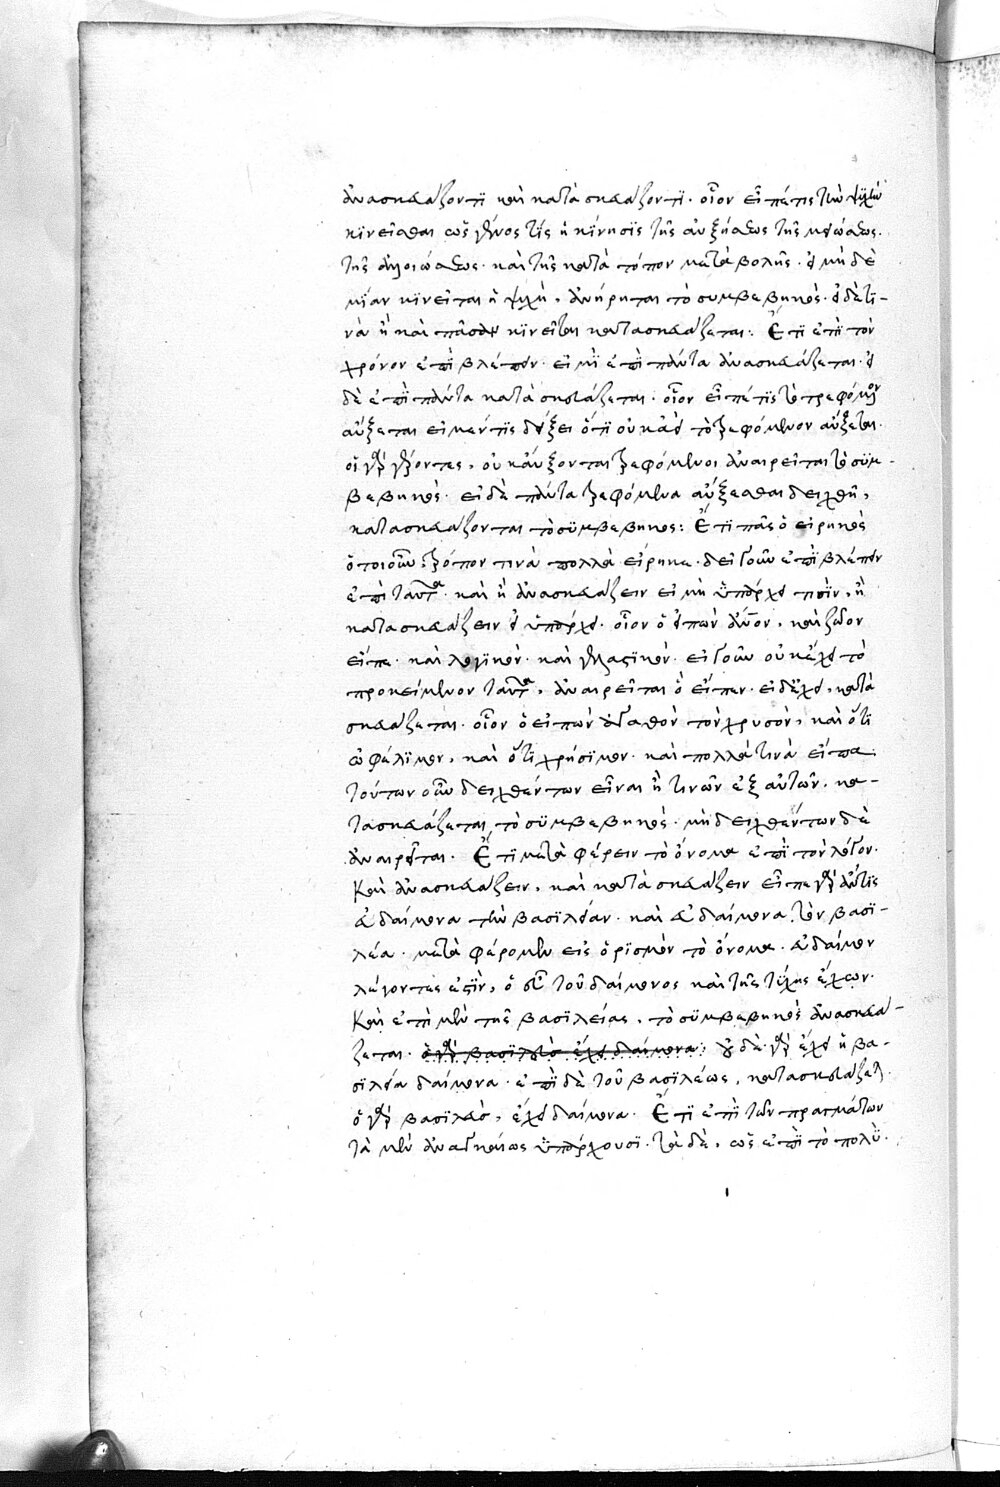 ἀνασκευάζοντι καὶ κατασκευάζοντι. οἷον εἶπέ τις τὴν ψυχὴν
κινεῖσθαι ὡς γένος τῆς ἡ κίνησις τῆς αὐξήσεως τῆς μειώσεως.
τῆς ἀλλοιώσεως. καὶ τῆς κατὰ τόπον μεταβολῆς. εἰ μηδὲ
μίαν κινεῖται ἡ ψυχὴ, ἀνῄρηται τὸ συμβεβηκός. εἰ δὲ τι-
νὰ ἢ καὶ πᾶσαν κινεῖται κατασκευάζεται: Ἔτι ἐπὶ τὸν
χρόνον ἐπιβλέπειν. εἰ μὴ ἐπὶ πάντα ἀνασκευάζεται. εἰ
δὲ ἐπὶ πάντα κατασκευάζεται. οἷον εἶπέ τις τὸ τρεφόμενον
αὔξεται εἰ μέν τις δείξει ὅτι οὐκ ἀεὶ τὸ τρεφόμενον αὔξεται.
οἱ γὰρ γέροντες, οὐκ αὔξονται τρεφόμενοι ἀναιρεῖται τὸ συμ-
βεβηκός. εἰ δὲ πάντα τρεφόμενα αὔξεσθαι δειχθῆ,
κατασκευάζονται τὸ συμβεβηκος: Ἔτι πᾶς ὁ εἰρηκὼς
ὁποιονοῦν τρόπον τινὰ πολλὰ εἴρηκε. δεῖ γοῦν ἐπιβλέπειν
ἐπὶ ταῦτα. καὶ ἢ ἀνασκευάζειν εἰ μὴ ὑπάρχει ποῖν, ἢ
κατασκευάζειν εἰ ὑπάρχει. οἷον ὁ εἰπὼν ἄνθρωπον, καὶ ζῶον
εἶπε. καὶ λογικόν. καὶ γελαστικόν. εἰ γοῦν οὐκ ἔχει τὸ
προκείμενον ταῦτα, ἀναιρεῖται ὃ εἶπεν. εἰ δ' ἔχει, κατα
σκευάζεται. οἷον ὁ εἰπὼν ἀγαθὸν τὸν χρυσὸν, καὶ ὅτι
ὠφέλιμον, καὶ ὅτι χρήσιμον. καὶ πολλά τινα εἶπε.
τούτων οὖν δειχθέντων εἶναι ἤ τινων ἐξ αὐτῶν, κα-
τασκευάζεται τὸ συμβεβηκός. μὴ δειχθέντων δὲ
ἀναιρεῖται. Ἔτι μεταφέρειν τὸ ὄνομα ἐπὶ τὸν λόγον.
Καὶ ἀνασκευάζειν, καὶ κατασκευάζειν εἶπε γὰρ ἄν τις
εὐδαίμονα τὴν βασιλείαν. καὶ εὐδαίμονα τὸν βασι-
λέα. μεταφέρομεν εἰς ὁρισμὸν τὸ ὄνομα. εὐδαίμων
λέγοντες ἐστὶν, ὁ εὖ τοῦ δαίμονος καὶ τῆς τύχης ἔχων.
Καὶ ἐπὶ μὲν τῆς βασιλείας, τὸ συμβεβηκὸς ἀνασκευά-
ζεται. ὁ γὰρ βασιλεὺς ἔχει δαίμονα; οὐδὲ γὰρ ἔχει ἡ βα-
σιλεία δαίμονα. ἐπὶ δὲ τοῦ βασιλέως, κατασκευάζεται.
ὁ γὰρ βασιλεὺς, ἔχει δαίμονα. Ἔτι ἐπεὶ τῶν πραγμάτων
τὰ μὲν ἀναγκαίως ὑπάρχουσι. τὰ δὲ, ὡς ἐπὶ τὸ πολὺ.